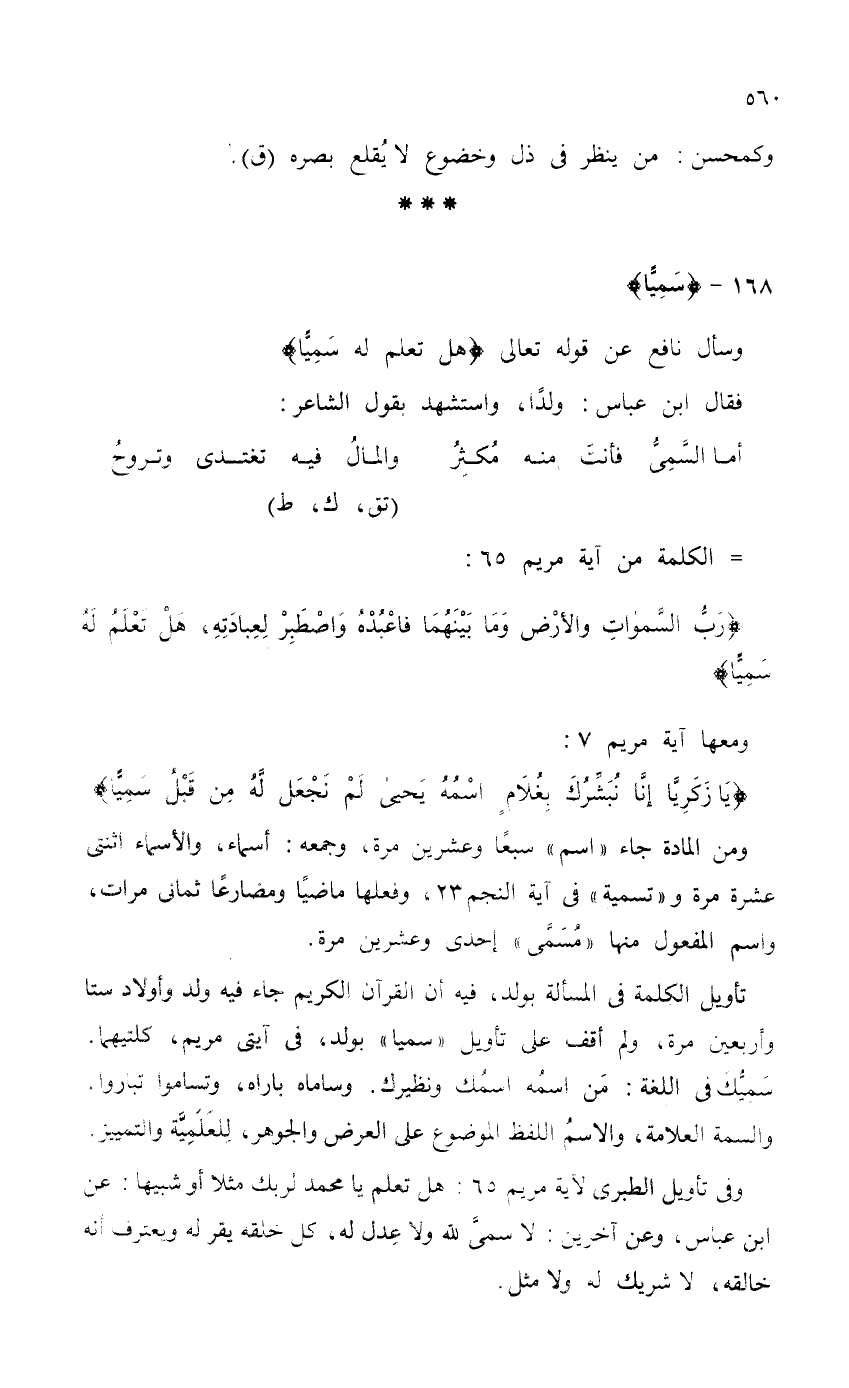 ٥٦٠
وكمحسن : من ينظر فى ذل وخضوع لا يُقلع بصره (ق).
***
١٦٨ - ﴿سَمِيًّا﴾
وسأل نافع عن قوله تعالى ﴿هل تعلم له سَمِيًّا﴾
فقال ابن عباس : ولدًا، واستشهد بقول الشاعر :
أما السَّمِىُّ فأنتَ منه مُكثِرُ والمالُ فيه تغتدى وتروحُ
(تق، ك، ط)
= الكلمة من آية مريم ٦٥ :
﴿رَبُّ السَّمٰواتِ والأرْض وَمَا بَيْنَهُمَا فاعْبُدْهُ وَاصْطَبِرْ لِعِبادَتِهِ، هَلْ تَعْلَمُ لَهُ
سَمِيًّا﴾
ومعها آية مريم ٧ :
﴿يَا زَكَرِيَّا إنَّا نُبَشِّرُكَ بِغُلَامٍ اسْمُهُ يَحيىٰ لَمْ نَجْعَل لَّهُ مِن قَبْلُ سَمِيًّا﴾
ومن المادة جاء «اسم» سبعًا وعشرين مرة، وجمعه : أسماء، والأسماء اثنتى
عشرة مرة و«تسمية» فى آية النجم ٢٣، وفعلها ماضيًا ومضارعًا ثمانى مرات،
واسم المفعول منها «مُسَمًّى» إحدى وعشرين مرة.
تأويل الكلمة فى المسألة بولد، فيه أن القرآن الكريم جاء فيه ولد وأولاد ستا
وأربعين مرة، ولم أقف على تأويل «سميا» بولد، فى آيتى مريم، كلتيهما.
سَمِيُّكَ فى اللغة : مَن اسمُه اسمُك ونظيرك. وساماه باراه، وتساموا تباروا.
والسمة العلامة، والاسمُ اللفظ الموضوع على العرض والجوهر، لِلعَلَمِيَّة والتمييز.
وفى تأويل الطبرى لآية مريم ٦٥ : هل تعلم يا محمد لربك مثلا أو شبيها : عن
ابن عباس، وعن آخرين : لا سمىَّ لله ولا عِدل له، كل خلقه يقر له ويعترف أنه
خالقه، لا شريك له ولا مثل.